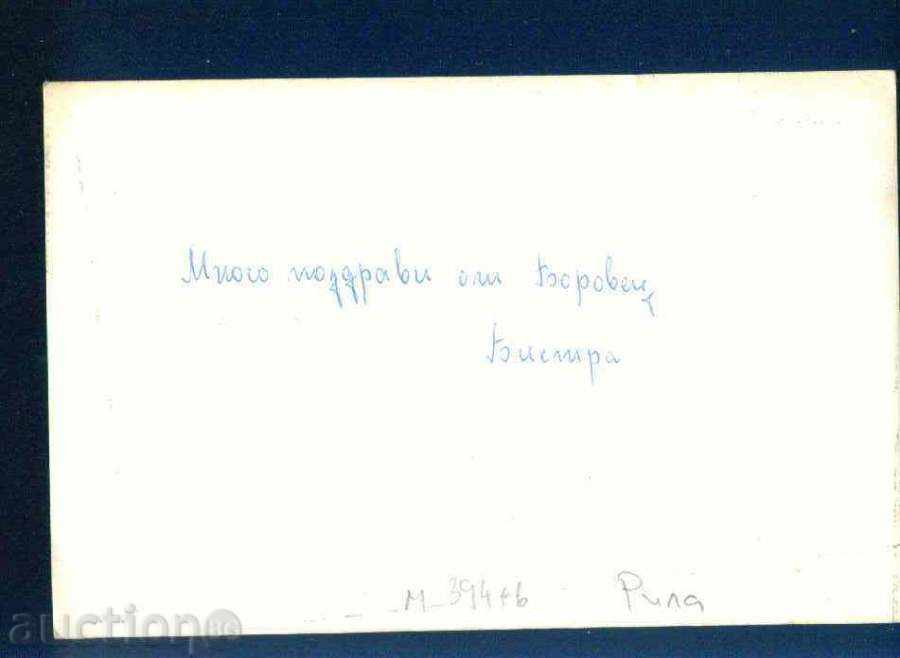 Много поздрави от Боровец
Бистра
Рила
auction